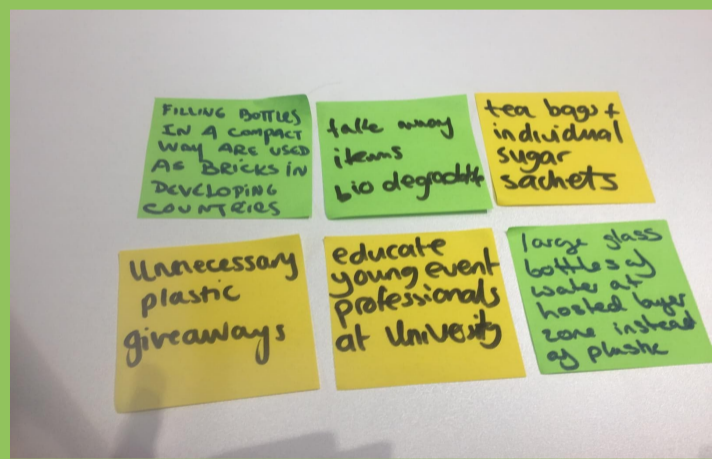 FILLING BOTTLES
IN A COMPACT
WAY ARE USED
AS BRICKS IN
DEVELOPING
COUNTRIES
take away
items
bio degradable
tea bags +
individual
sugar
sachets
Unnecessary
plastic
giveaways
educate
young event
professionals
at University
large glass
bottles of
water at
hosted buyer
zone instead
of plastic